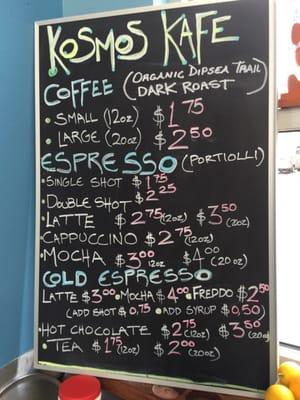 KOSMOS KAFE
COFFEE (ORGANIC DIPSEA TRAIL
DARK ROAST)
• SMALL (12oz) $1.75
• LARGE (20oz) $2.50
ESPRESSO (PORTIOLLI)
• SINGLE SHOT $1.75
• DOUBLE SHOT $2.25
• LATTE $2.75 (12oz) $3.50 (20oz)
• CAPPUCCINO $2.75 (12oz)
• MOCHA $3.00 12oz $4.00 (20oz)
COLD ESPRESSO
LATTE $3.00 • MOCHA $4.00 • FREDDO $2.50
(ADD SHOT $0.75 • ADD SYRUP $0.50)
• HOT CHOCOLATE $2.75 (12oz) $3.50 (20oz)
• TEA $1.75 (12oz) $2.00 (20oz)